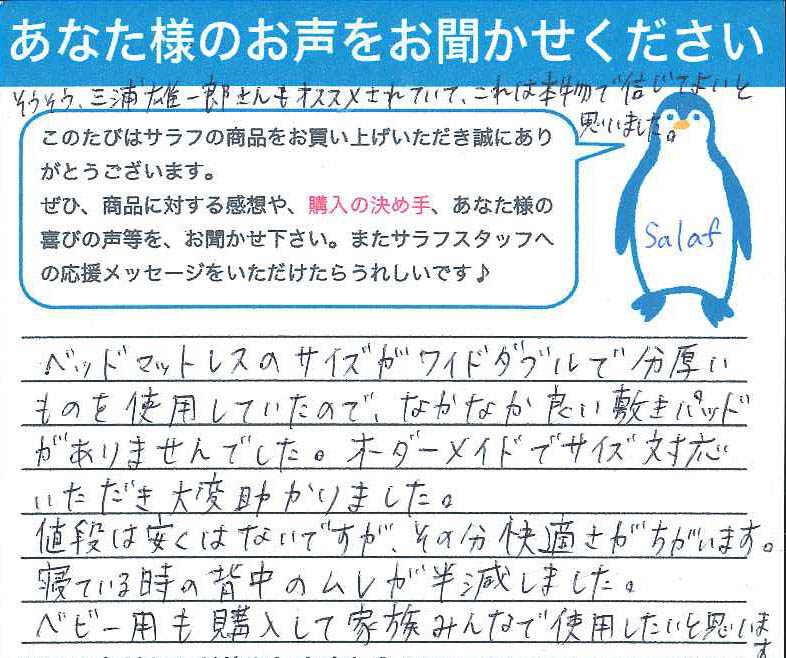 あなた様のお声をお聞かせください
そうそう、三浦雄一郎さんもオススメされていて、これは本物で信じてよいと
思いました。
このたびはサラフの商品をお買い上げいただき誠にあり
がとうございます。
ぜひ、商品に対する感想や、購入の決め手、あなた様の
喜びの声等を、お聞かせ下さい。またサラフスタッフへ
の応援メッセージをいただけたらうれしいです♪
Salaf
ベッドマットレスのサイズがワイドダブルで分厚い
ものを使用していたので、なかなか良い敷きパッド
がありませんでした。オーダーメイドでサイズ対応
いただき大変助かりました。
値段は安くはないですが、その分快適さがちがいます。
寝ている時の背中のムレが半減しました。
ベビー用も購入して家族みんなで使用したいと思いま
す